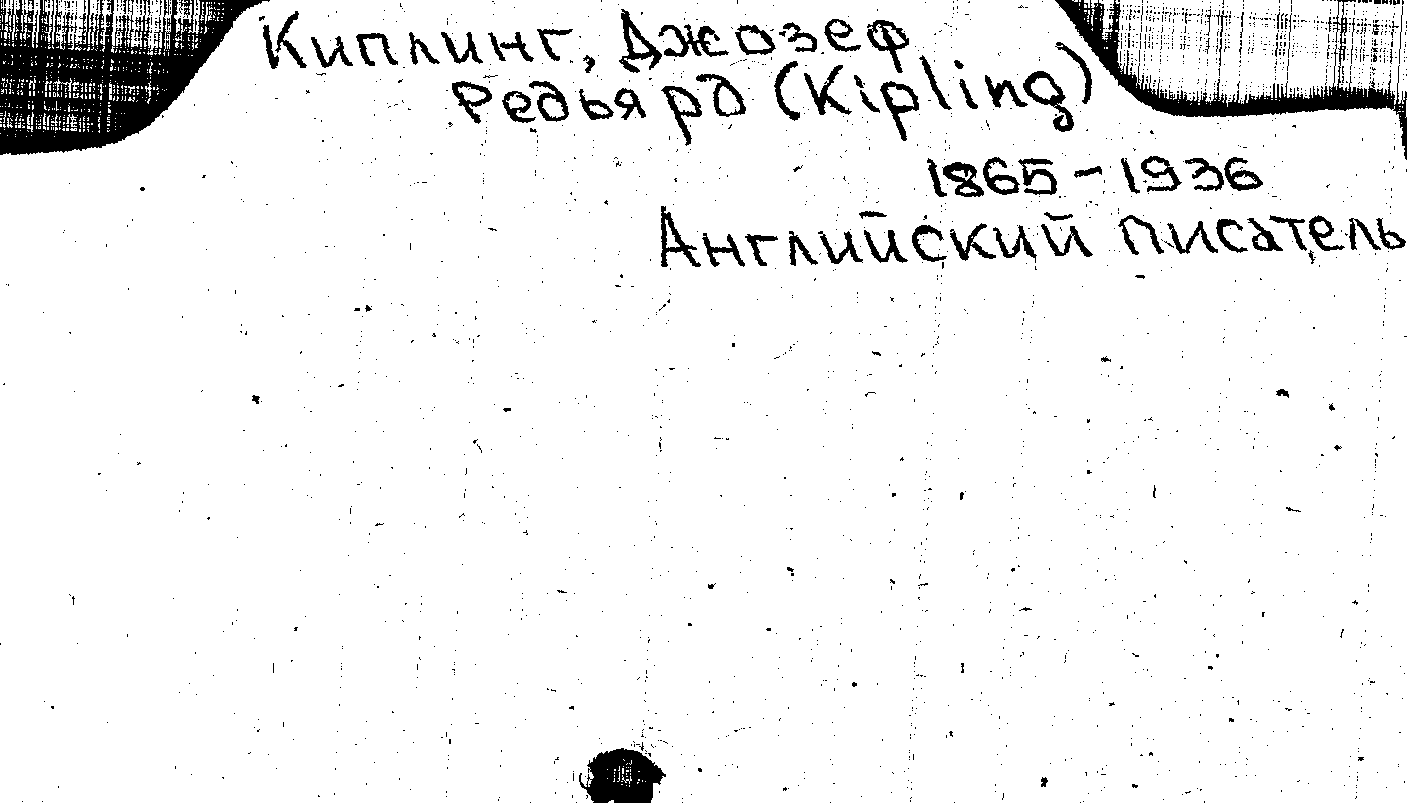 Киплинг, Джозеф
Редьярд (Kipling)
1865-1936
Английский писатель